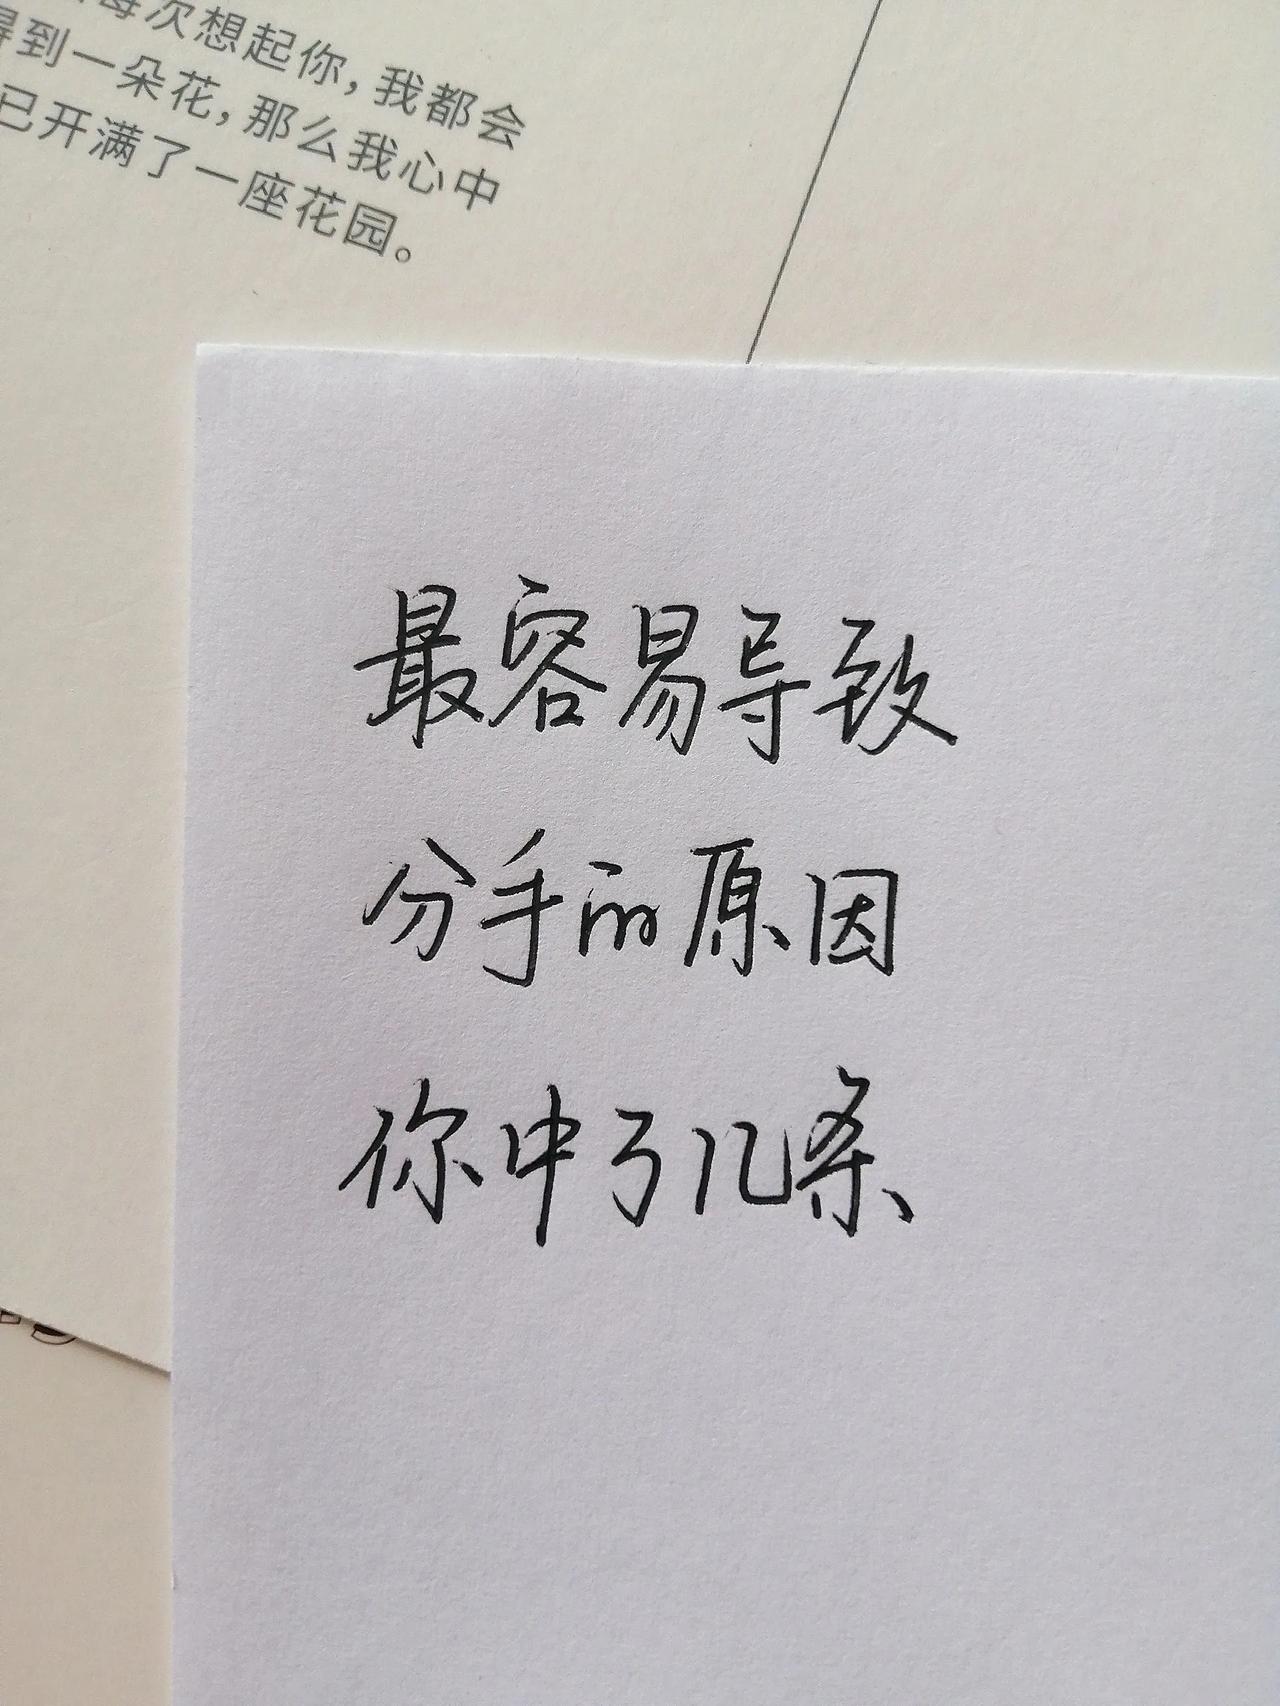 每次想起你，我都会
得到一朵花，那么我心中
已开满了一座花园。
最容易导致
分手的原因
你中了几条